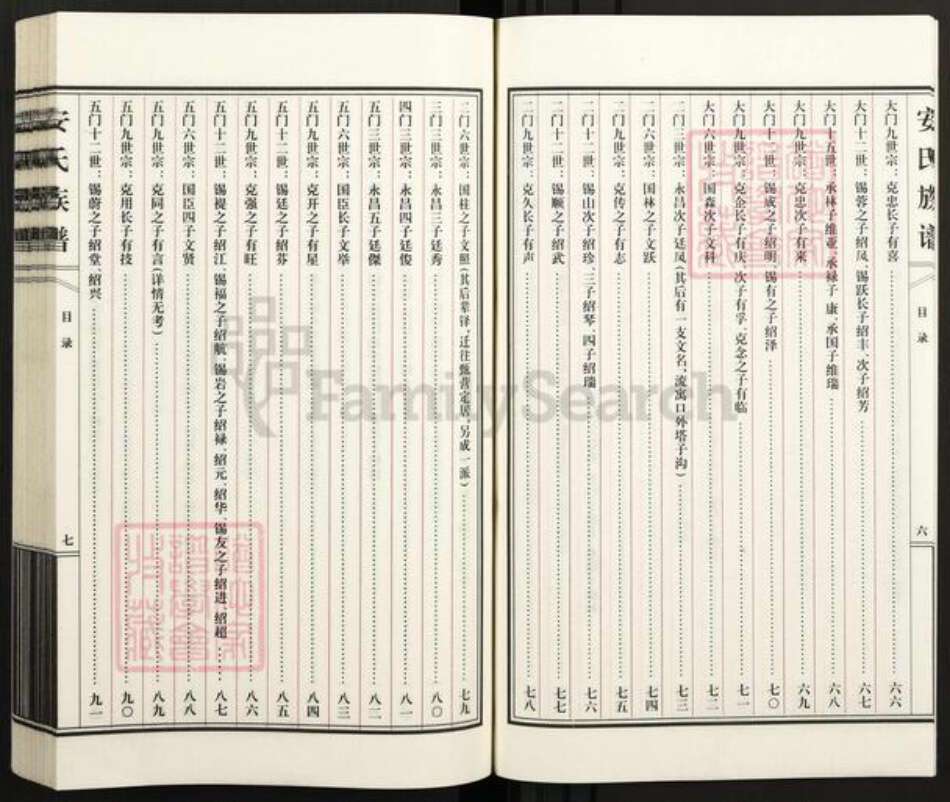 安氏族谱
目录
六
大门九世宗：克忠长子有喜……六六
大门十二世：锡蓉之子绍凤、锡跃长子绍丰、次子绍芳……六七
大门十五世：承林子维亚、承禄子康、承国子维瑞……六八
大门九世宗：克忠次子有来……六九
大门十二世：锡成之子绍明、锡有之子绍泽……七〇
大门九世宗：克企长子有庆、次子有孚、克念之子有临……七一
大门六世宗：国森次子文科……七二
二门三世宗：永昌次子廷凤(其后有一支文名，流寓口外塔子沟)……七三
二门六世宗：国林之子文跃……七四
二门九世宗：克传之子有志……七五
二门十二世：锡山次子绍珍、三子绍琴、四子绍瑞……七六
二门十二世：锡顺之子绍武……七七
二门九世宗：克久长子有声……七八
二门六世宗：国柱之子文照(其后 铎，迁往甄营定居，另成一派)……七九
三门三世宗：永昌三子廷秀……八〇
四门三世宗：永昌四子廷俊……八一
五门三世宗：永昌五子廷傑……八二
五门六世宗：国臣长子文举……八三
五门九世宗：克开之子有星……八四
五门十二世：锡廷之子绍芬……八五
五门九世宗：克强之子有旺……八六
五门十二世：锡禔之子绍江、锡福之子绍航、锡岩之子绍禄、绍元、绍华、锡友之子绍进、绍超……八七
五门六世宗：国臣四子文贤……八八
五门九世宗：克同之子有言(详情无考)……八九
五门九世宗：克用长子有技……九〇
五门十二世：锡蔚之子绍堂、绍兴……九一
安氏族谱
目录
七
FamilySearch